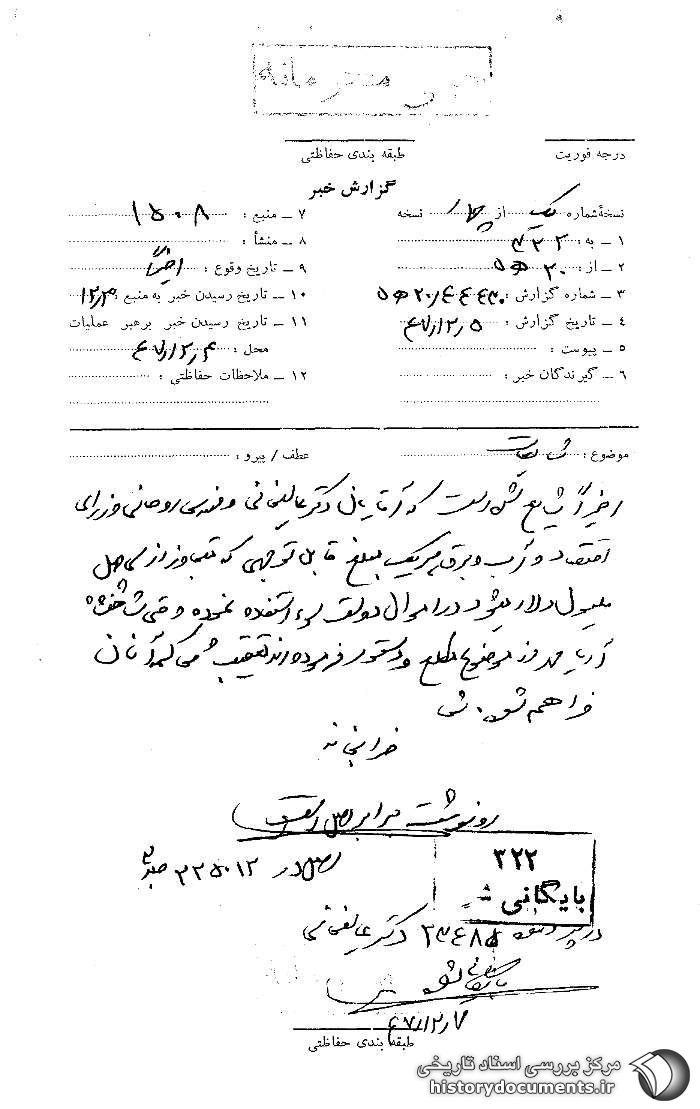 خیلی محرمانه
درجه فوریت
طبقه بندی حفاظتی
گزارش خبر
نسخهٔ شماره یک از نسخه
۱ ــ به : ۳۲۲
۲ ــ از : ۲۰ ﻫ ۵
۳ ــ شماره گزارش :
۴ ــ تاریخ گزارش : ۴۷/۱۲/۵
۵ ــ پیوست :
۶ ــ گیرندگان خبر :
۷ ــ منبع : ۱۵۰۸
۸ ــ منشأ :
۹ ــ تاریخ وقوع : اخیراً
۱۰ ــ تاریخ رسیدن خبر به منبع : ۱۲/۳
۱۱ ــ تاریخ رسیدن خبر برهبر عملیات
محل : ۴۷/۱۲/۴
۱۲ ــ ملاحظات حفاظتی :
موضوع : شایعات
عطف / پیرو :
اخیراً شایع شده است که آقایان دکتر عالیخانی و مهندس روحانی وزرای
اقتصاد و آب و برق هر یک مبلغ قابل توجهی که متجاوز از سی
میلیون دلار میشود در اموال دولتی سوء استفاده نموده و حتی شاهنشاه
آریامهر از موضوع مطلع و دستور فرموده‌اند تعقیب و محاکمه آنان
فراهم شود. ش
رونوشت برابر اصل است
اصل در ۳۲۵۰۱۲
۳۲۲
بایگانی ش
در پرونده ۲۳۴۸۵ دکتر عالیخانی
بایگانی شود
۴۷/۱۲/
طبقه بندی حفاظتی
مرکز بررسی اسناد تاریخی
historydocuments.ir